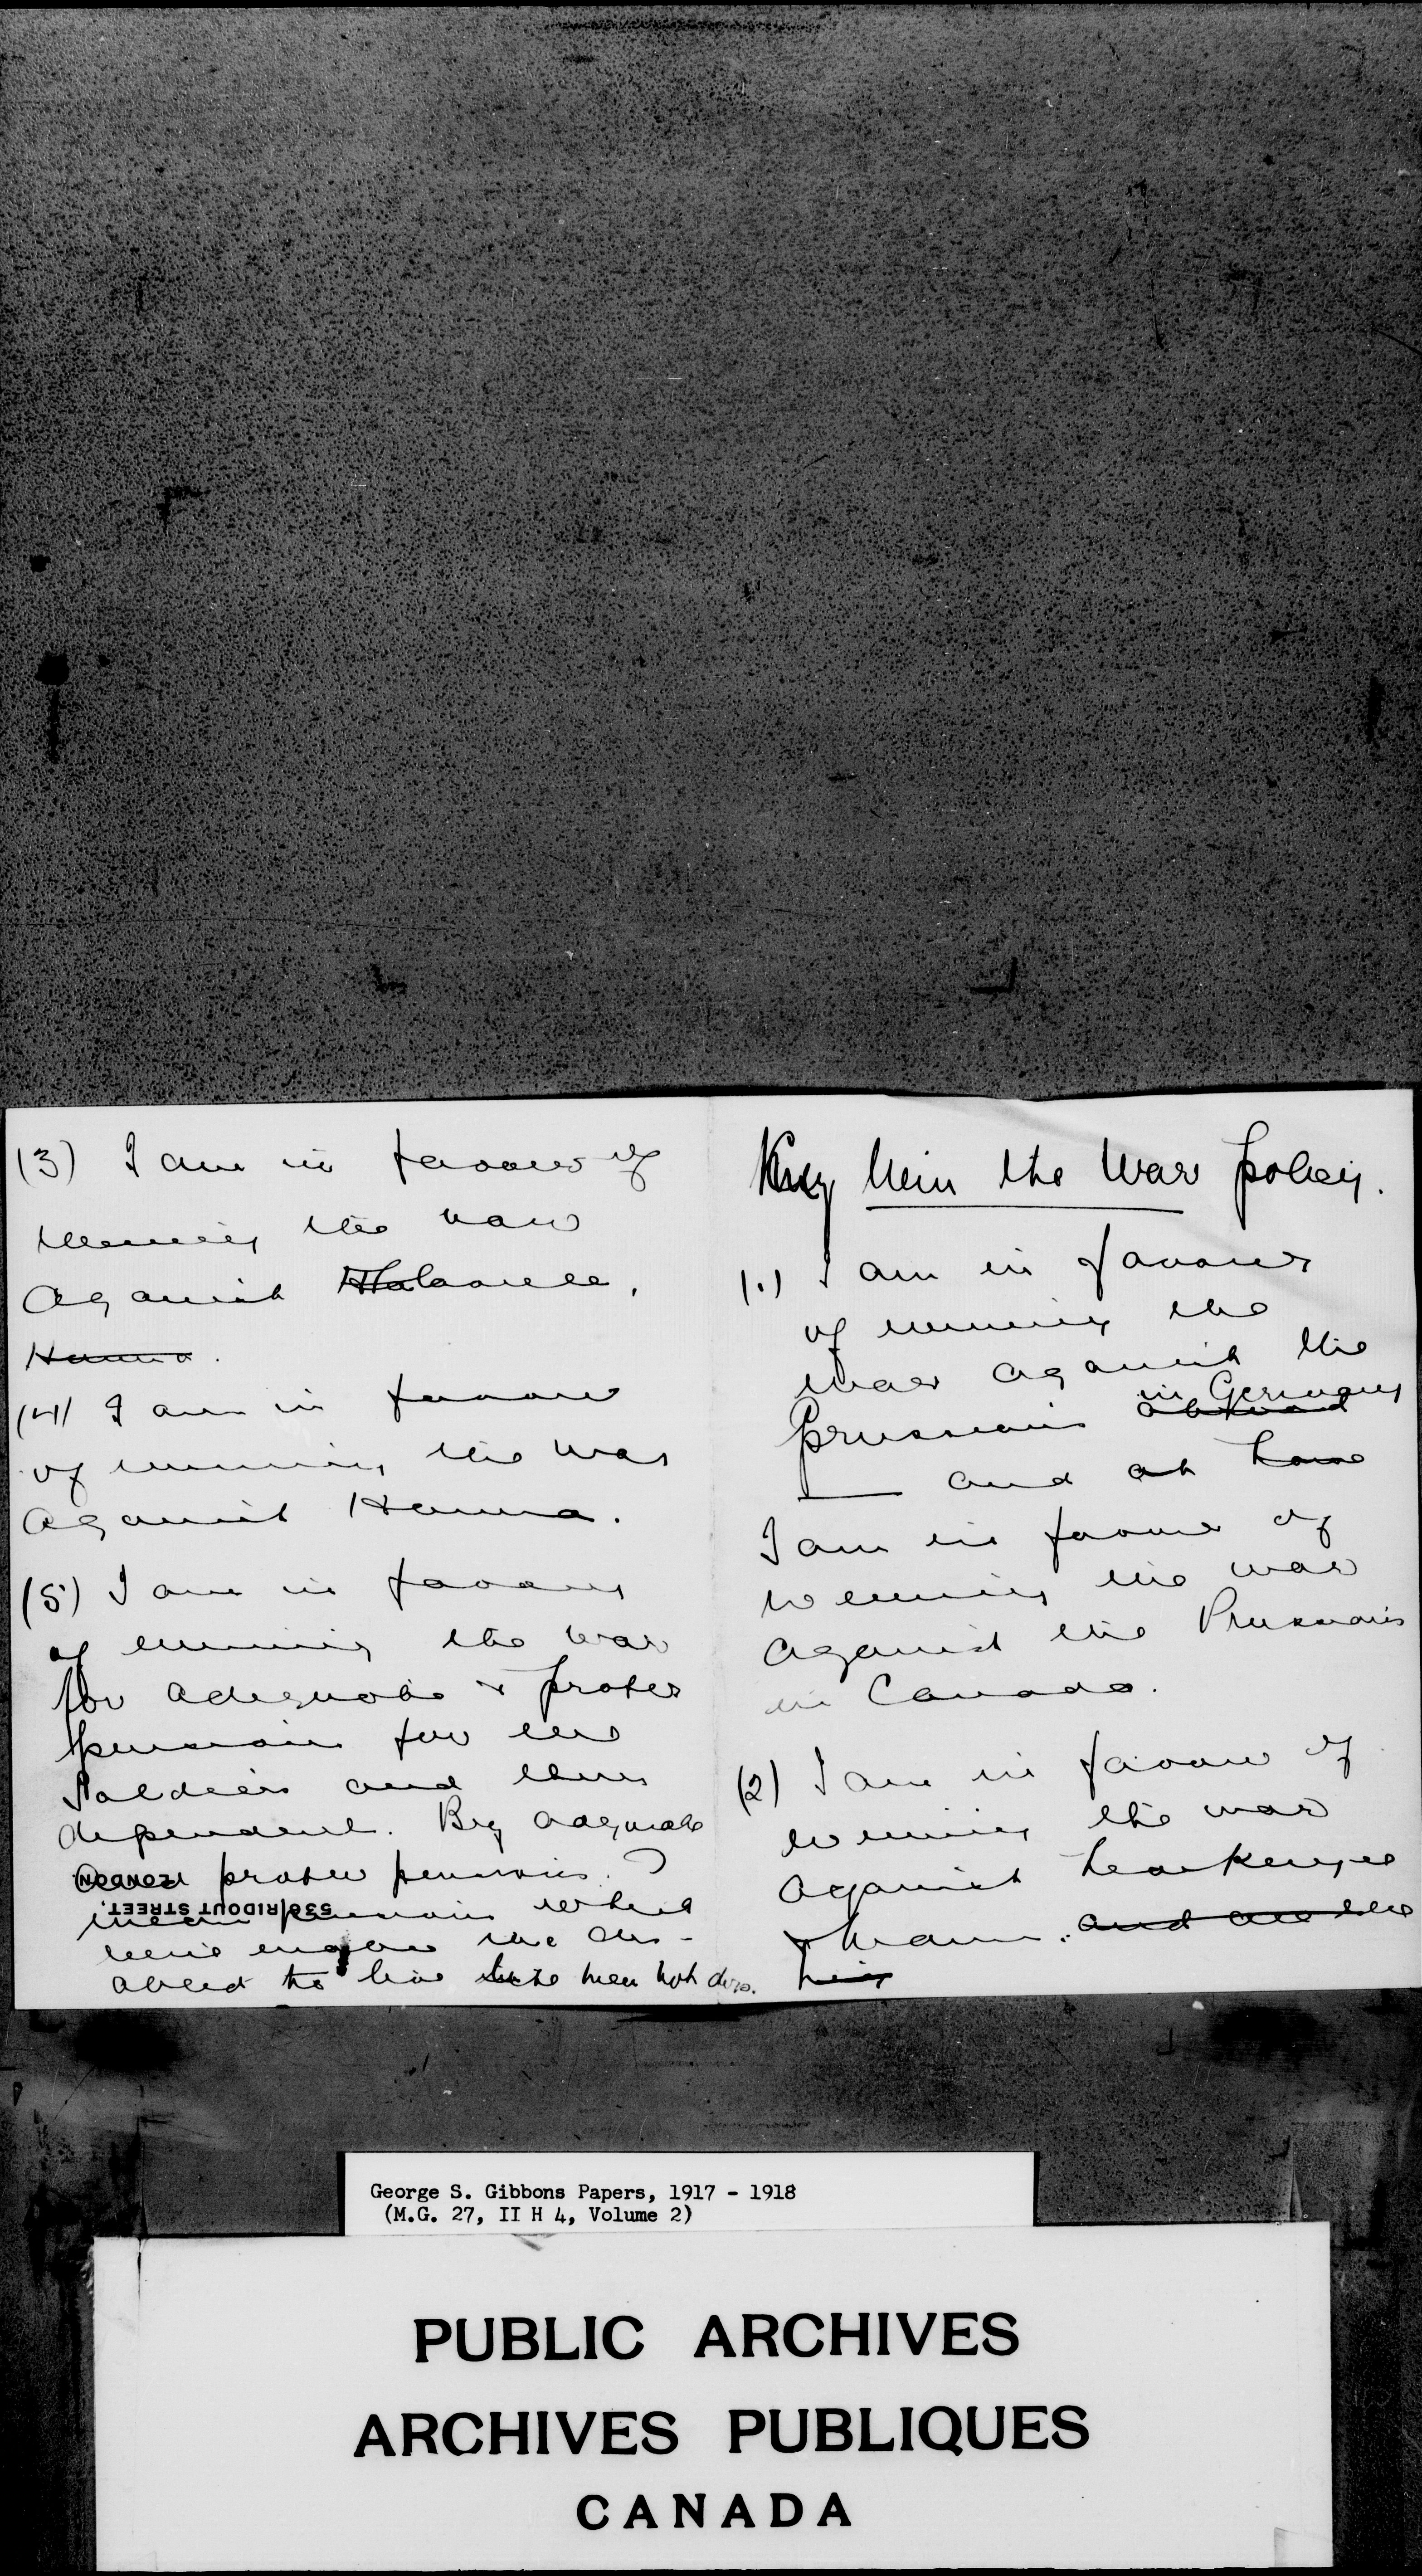 My Win the War policy.
(1.) I am in favour
of winning the
war against the
Prussians abroad in Germany
and at home
I am in favour of
winning the war
against the Prussians
in Canada.
(2) I am in favour of
winning the war
against MacKenzie
& Mann. and all the
(3) I am in favour of
winning the war
against Flavelle.
Hanna.
(4) I am in favour
of winning the war
against Hanna.
(5) I am in favour
of winning the war
for adequate & proper
pensions for the
soldiers and their
dependent. By adequate
and proper pensions I
mean pensions which
will enable the dis-
abled to live like men not dogs.
LONDON
536 RIDOUT STREET.
George S. Gibbons Papers, 1917 - 1918
(M.G. 27, II H 4, Volume 2)
PUBLIC ARCHIVES
ARCHIVES PUBLIQUES
CANADA